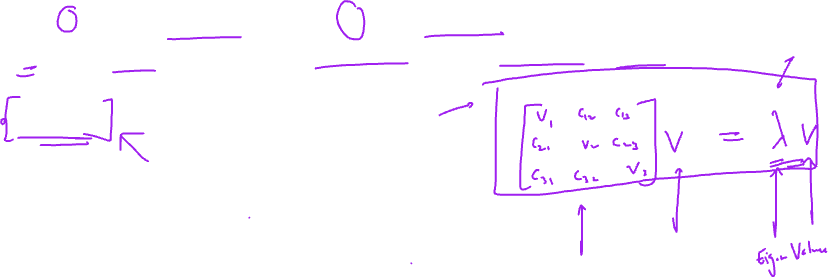 0 0
=
[ ]
V₁ C₁₂ C₁₃
C₂₁ V₂ C₂₃ V = λ V
C₃₁ C₃₂ V₃
Eigen Values